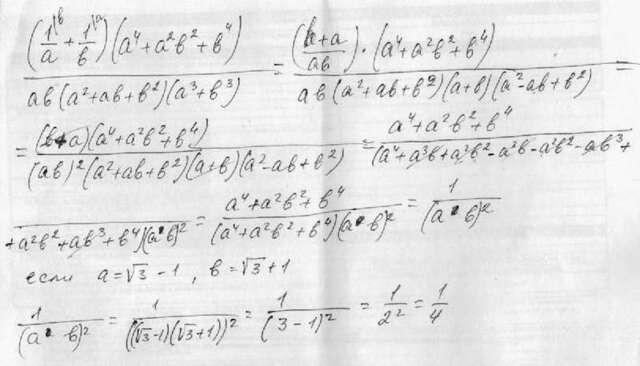 (1/a |b + 1/b |a)(a⁴+a²b²+b⁴) / ab(a²+ab+b²)(a³+b³) = ((b+a)/ab)·(a⁴+a²b²+b⁴) / ab(a²+ab+b²)(a+b)(a²-ab+b²) =
= (b+a)(a⁴+a²b²+b⁴) / (ab)²(a²+ab+b²)(a+b)(a²-ab+b²) = a⁴+a²b²+b⁴ / (a⁴+a³b+a²b²-a³b-a²b²-ab³+
+a²b²+ab³+b⁴)(a·b)² = a⁴+a²b²+b⁴ / (a⁴+a²b²+b⁴)(a·b)² = 1 / (a·b)²
если a=√3-1, b=√3+1
1 / (a·b)² = 1 / ((√3-1)(√3+1))² = 1 / (3-1)² = 1/2² = 1/4